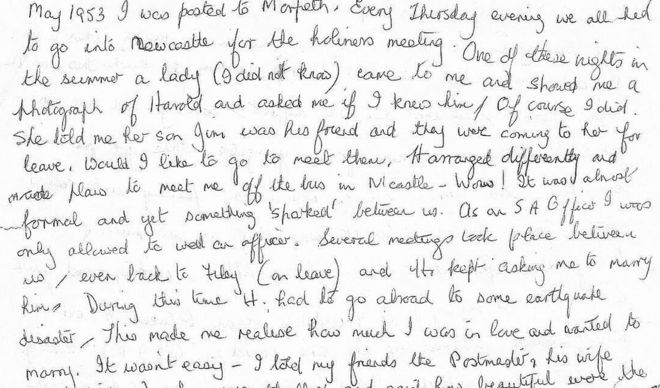 May 1953 I was posted to Morpeth. Every Thursday evening we all had
to go into Newcastle for the holiness meeting. One of these nights in
the summer a lady (I did not know) came to me and showed me a
photograph of Harold and asked me if I knew him / Of course I did.
She told me her son Jim was his friend and they were coming to her for
leave. Would I like to go to meet them. H arranged differently and
made plans to meet me off the bus in N/castle - Wow! It was almost
formal and yet something 'sparked' between us. As an S A Officer I was
only allowed to wed an officer. Several meetings took place between
us / even back to Filey (on leave) and H kept asking me to marry
him. During this time H. had to go abroad to some earthquake
disaster, This made me realise how much I was in love and wanted to
marry. It wasn't easy - I told my friends the Postmaster, his wife
beautiful were the